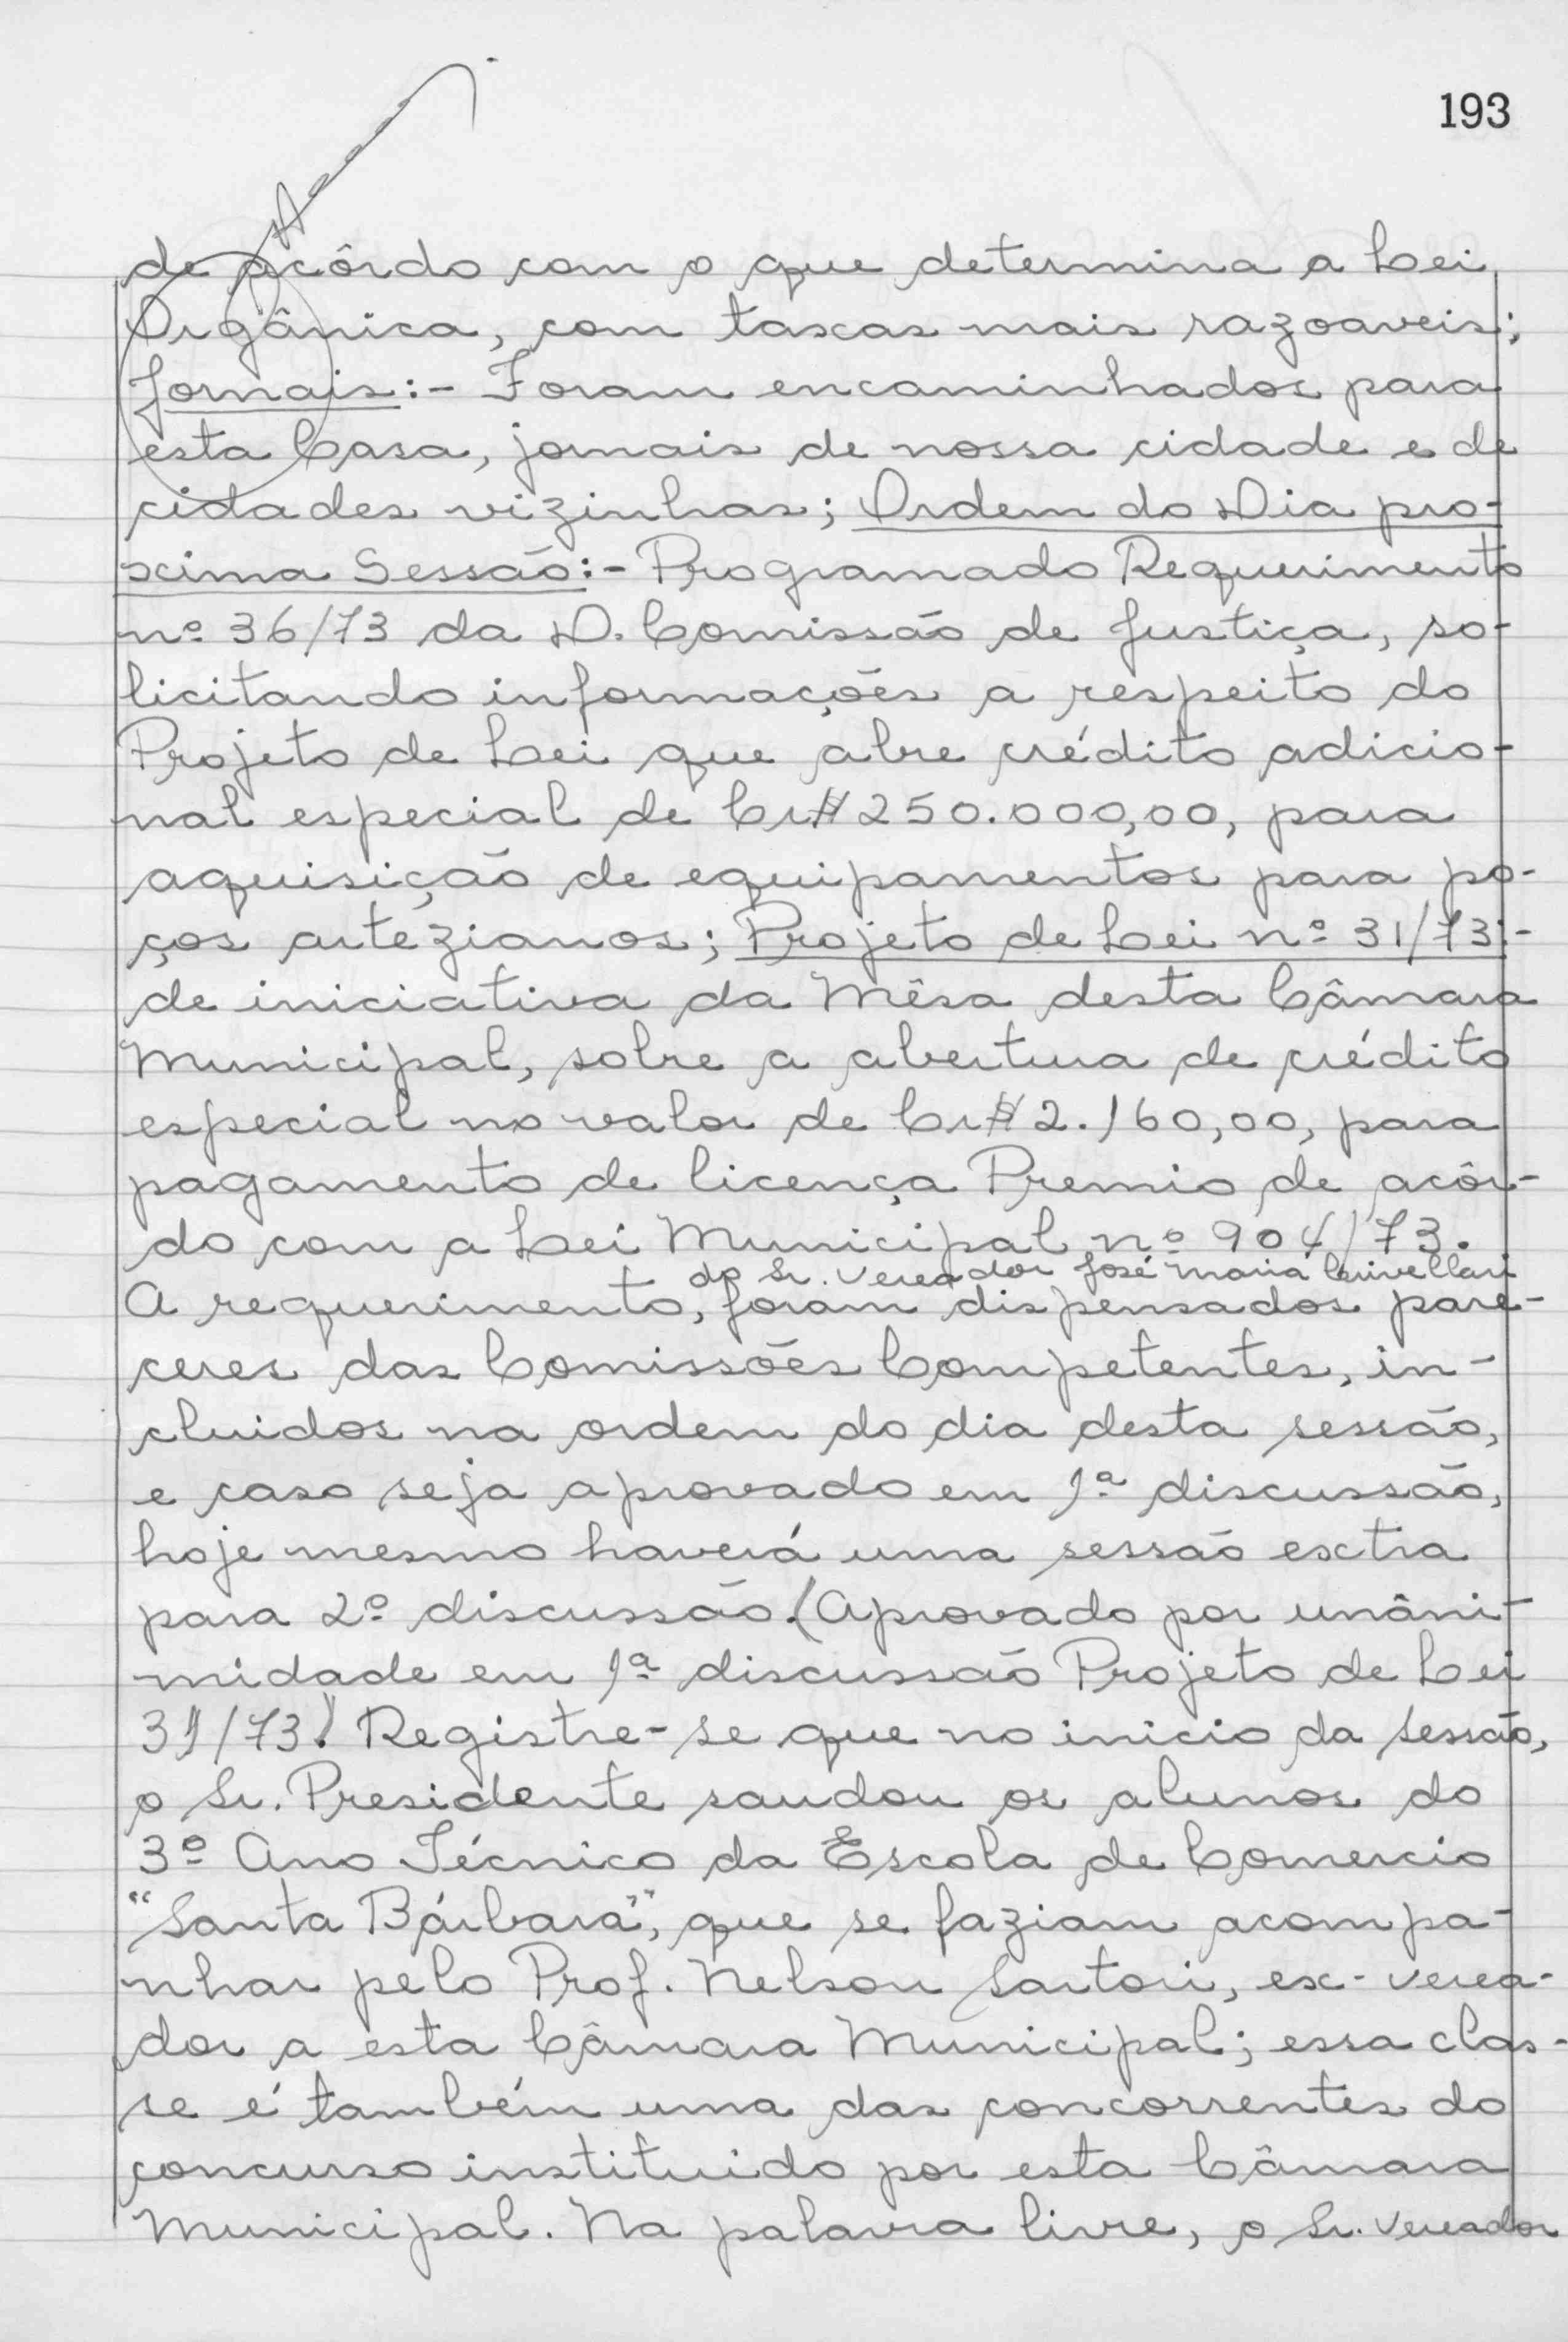 193
de acôrdo com o que determina a Lei
Orgânica, com taxas mais razoaveis;
Jornais:- Foram encaminhados para
esta Casa, jornais de nossa cidade e de
cidades vizinhas; Ordem do Dia pro-
xima Sessão:- Programado Requerimento
nº 36/73 da D. Comissão de Justiça, so-
licitando informações a respeito do
Projeto de Lei que abre crédito adicio-
nal especial de Cr$ 250.000,00, para
aquisição de equipamentos para po-
ços artezianos; Projeto de Lei nº 31/73:-
de iniciativa da Mêsa desta Câmara
Municipal, sobre a abertura de crédito
especial no valor de Cr$ 2.160,00, para
pagamento de licença Premio de acôr-
do com a Lei Municipal nº 904/73.
do Sr. Vereador José Maria Crivellari
A requerimento, foram dispensados pare-
ceres das Comissões Competentes, in-
cluidos na ordem do dia desta sessão,
e caso seja aprovado em 1ª discussão,
hoje mesmo haverá uma sessão extra
para 2º discussão. (Aprovado por unâni-
midade em 1ª discussão Projeto de Lei
31/73). Registre-se que no inicio da sessão,
o Sr. Presidente saudou os alunos do
3º Ano Técnico da Escola de Comercio
"Santa Bárbara", que se faziam acompa-
nhar pelo Prof. Nelson Sartori, ex-verea-
dor a esta Câmara Municipal; essa clas-
se é também uma das concorrentes do
concurso instituido por esta Câmara
Municipal. Na palavra livre, o Sr. Vereador